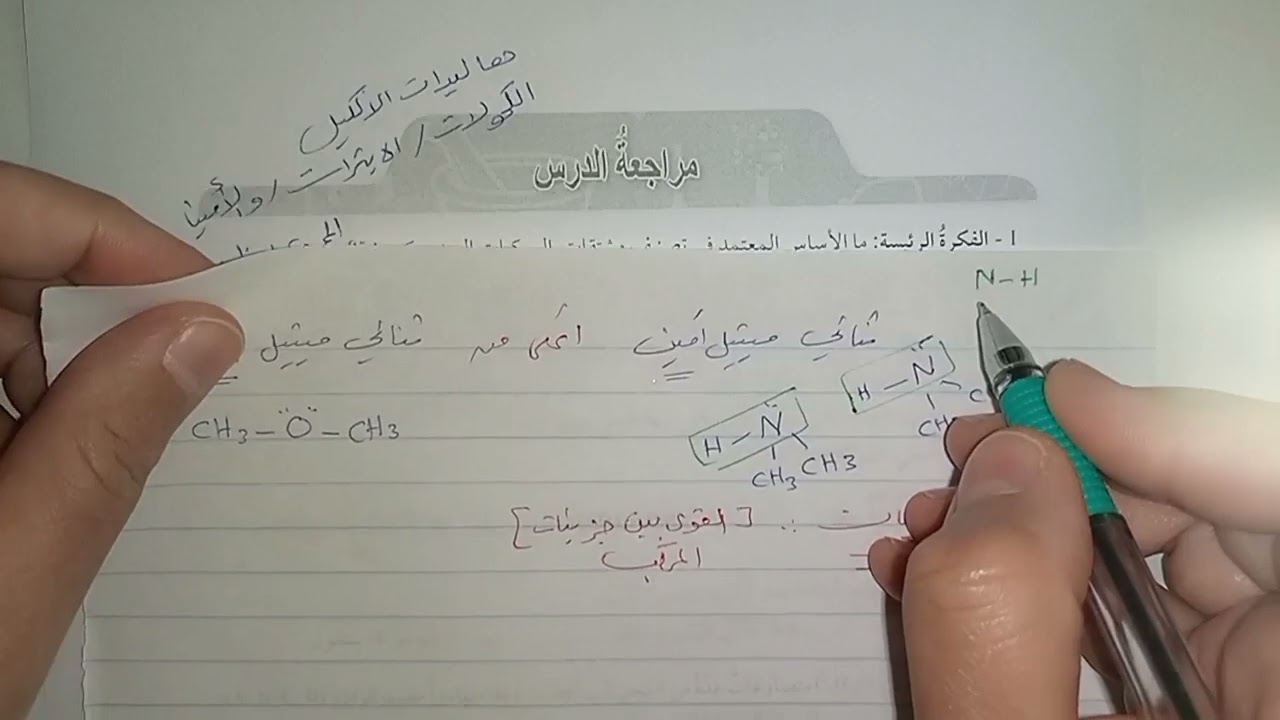 هاليدات الألكيل
الكحولات / الايثرات / والأمينا
مراجعةُ الدرس
1 - الفكرةُ الرئسية: ما الأساس المعتمد في
N-H
ثنائي ميثيل أمين أعلى من ثنائي ميثيل
H-N̈
CH3
H-N̈
CH3 CH3
CH3-Ö-CH3
[القوى بين جزيئات]
المركب